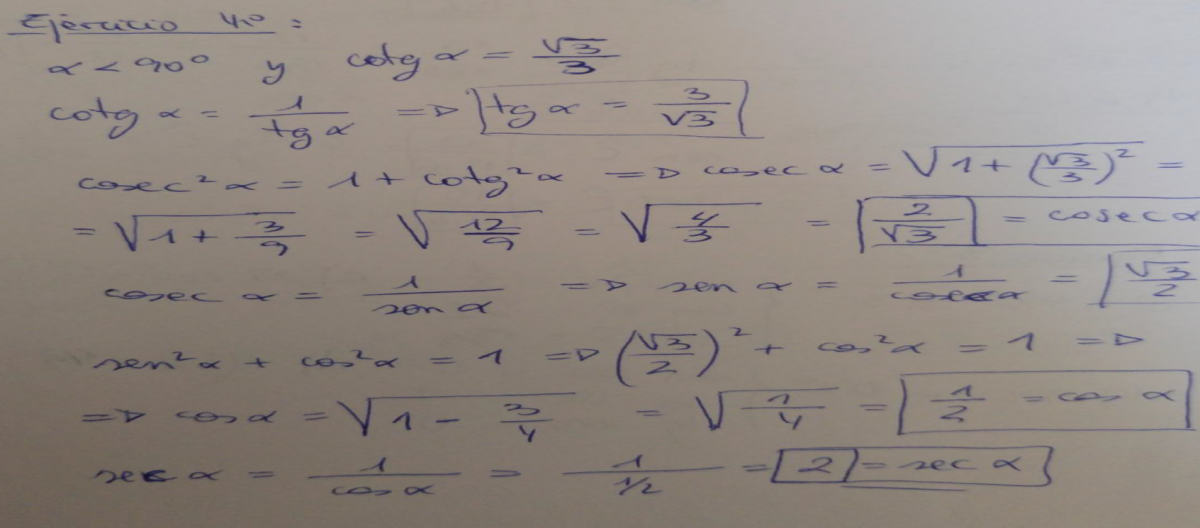 Ejercicio 4º:
α < 90º y cotg α = √3/3
cotg α = 1/tg α => tg α = 3/√3
cosec²α = 1 + cotg²α => cosec α = √(1 + (√3/3)²) =
= √(1 + 3/9) = √(12/9) = √(4/3) = 2/√3 = cosec α
cosec α = 1/sen α => sen α = 1/cosec α = √3/2
sen²α + cos²α = 1 => (√3/2)² + cos²α = 1 =>
=> cos α = √(1 - 3/4) = √(1/4) = 1/2 = cos α
sec α = 1/cos α = 1/(1/2) = 2 = sec α